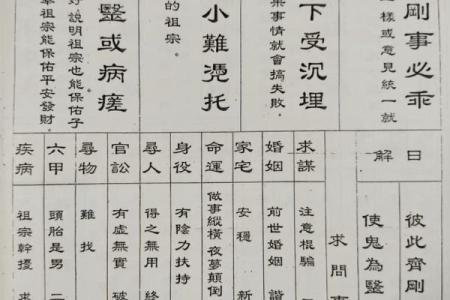 剛事必乖
一樣或意見統一就
下受沉埋
某事情就會搞失敗.
小難憑托
的祖宗.
醫或病瘥
好說明祖宗也能保佑子
祖宗能保佑平安發財.
日解
彼此齊剛
使鬼為醫
求問事
求謀 注意棍騙
婚姻 前世婚姻 諧
家宅 安穩 新
命運 做事縱橫 夜夢顛倒
身役 有陰力扶持
尋人 得之無用 終
官訟 有虛無實 破
尋物 難找
六甲 頭胎是男 二
疾病 祖宗幹擾 求